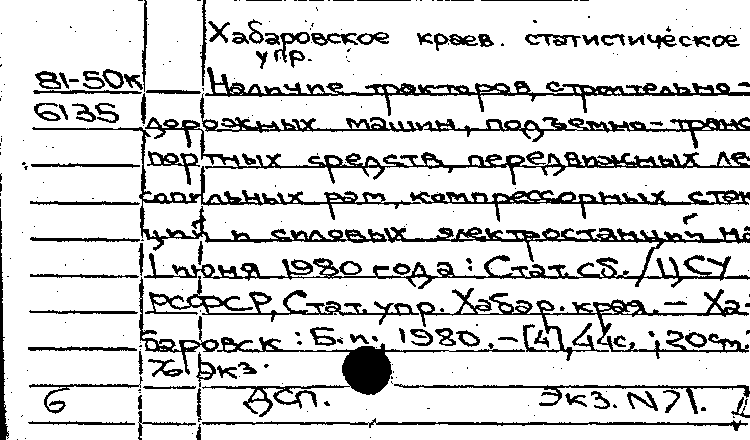 Хабаровское краев. статистическое
упр.
81-50к Наличие тракторов, строительно-
6135 дорожных машин, подъемно-транс
портных средств, передвижных ле
сопильных рам, компрессорных стан
ций и силовых электростанций на
1 июня 1980 года : Стат. сб. / ЦСУ
РСФСР, Стат. упр. Хабар. края. – Ха-
баровск : Б.и., 1980. – [4], 44с. ; 20см.
76 экз.
6 ДСП. Экз. N 71.